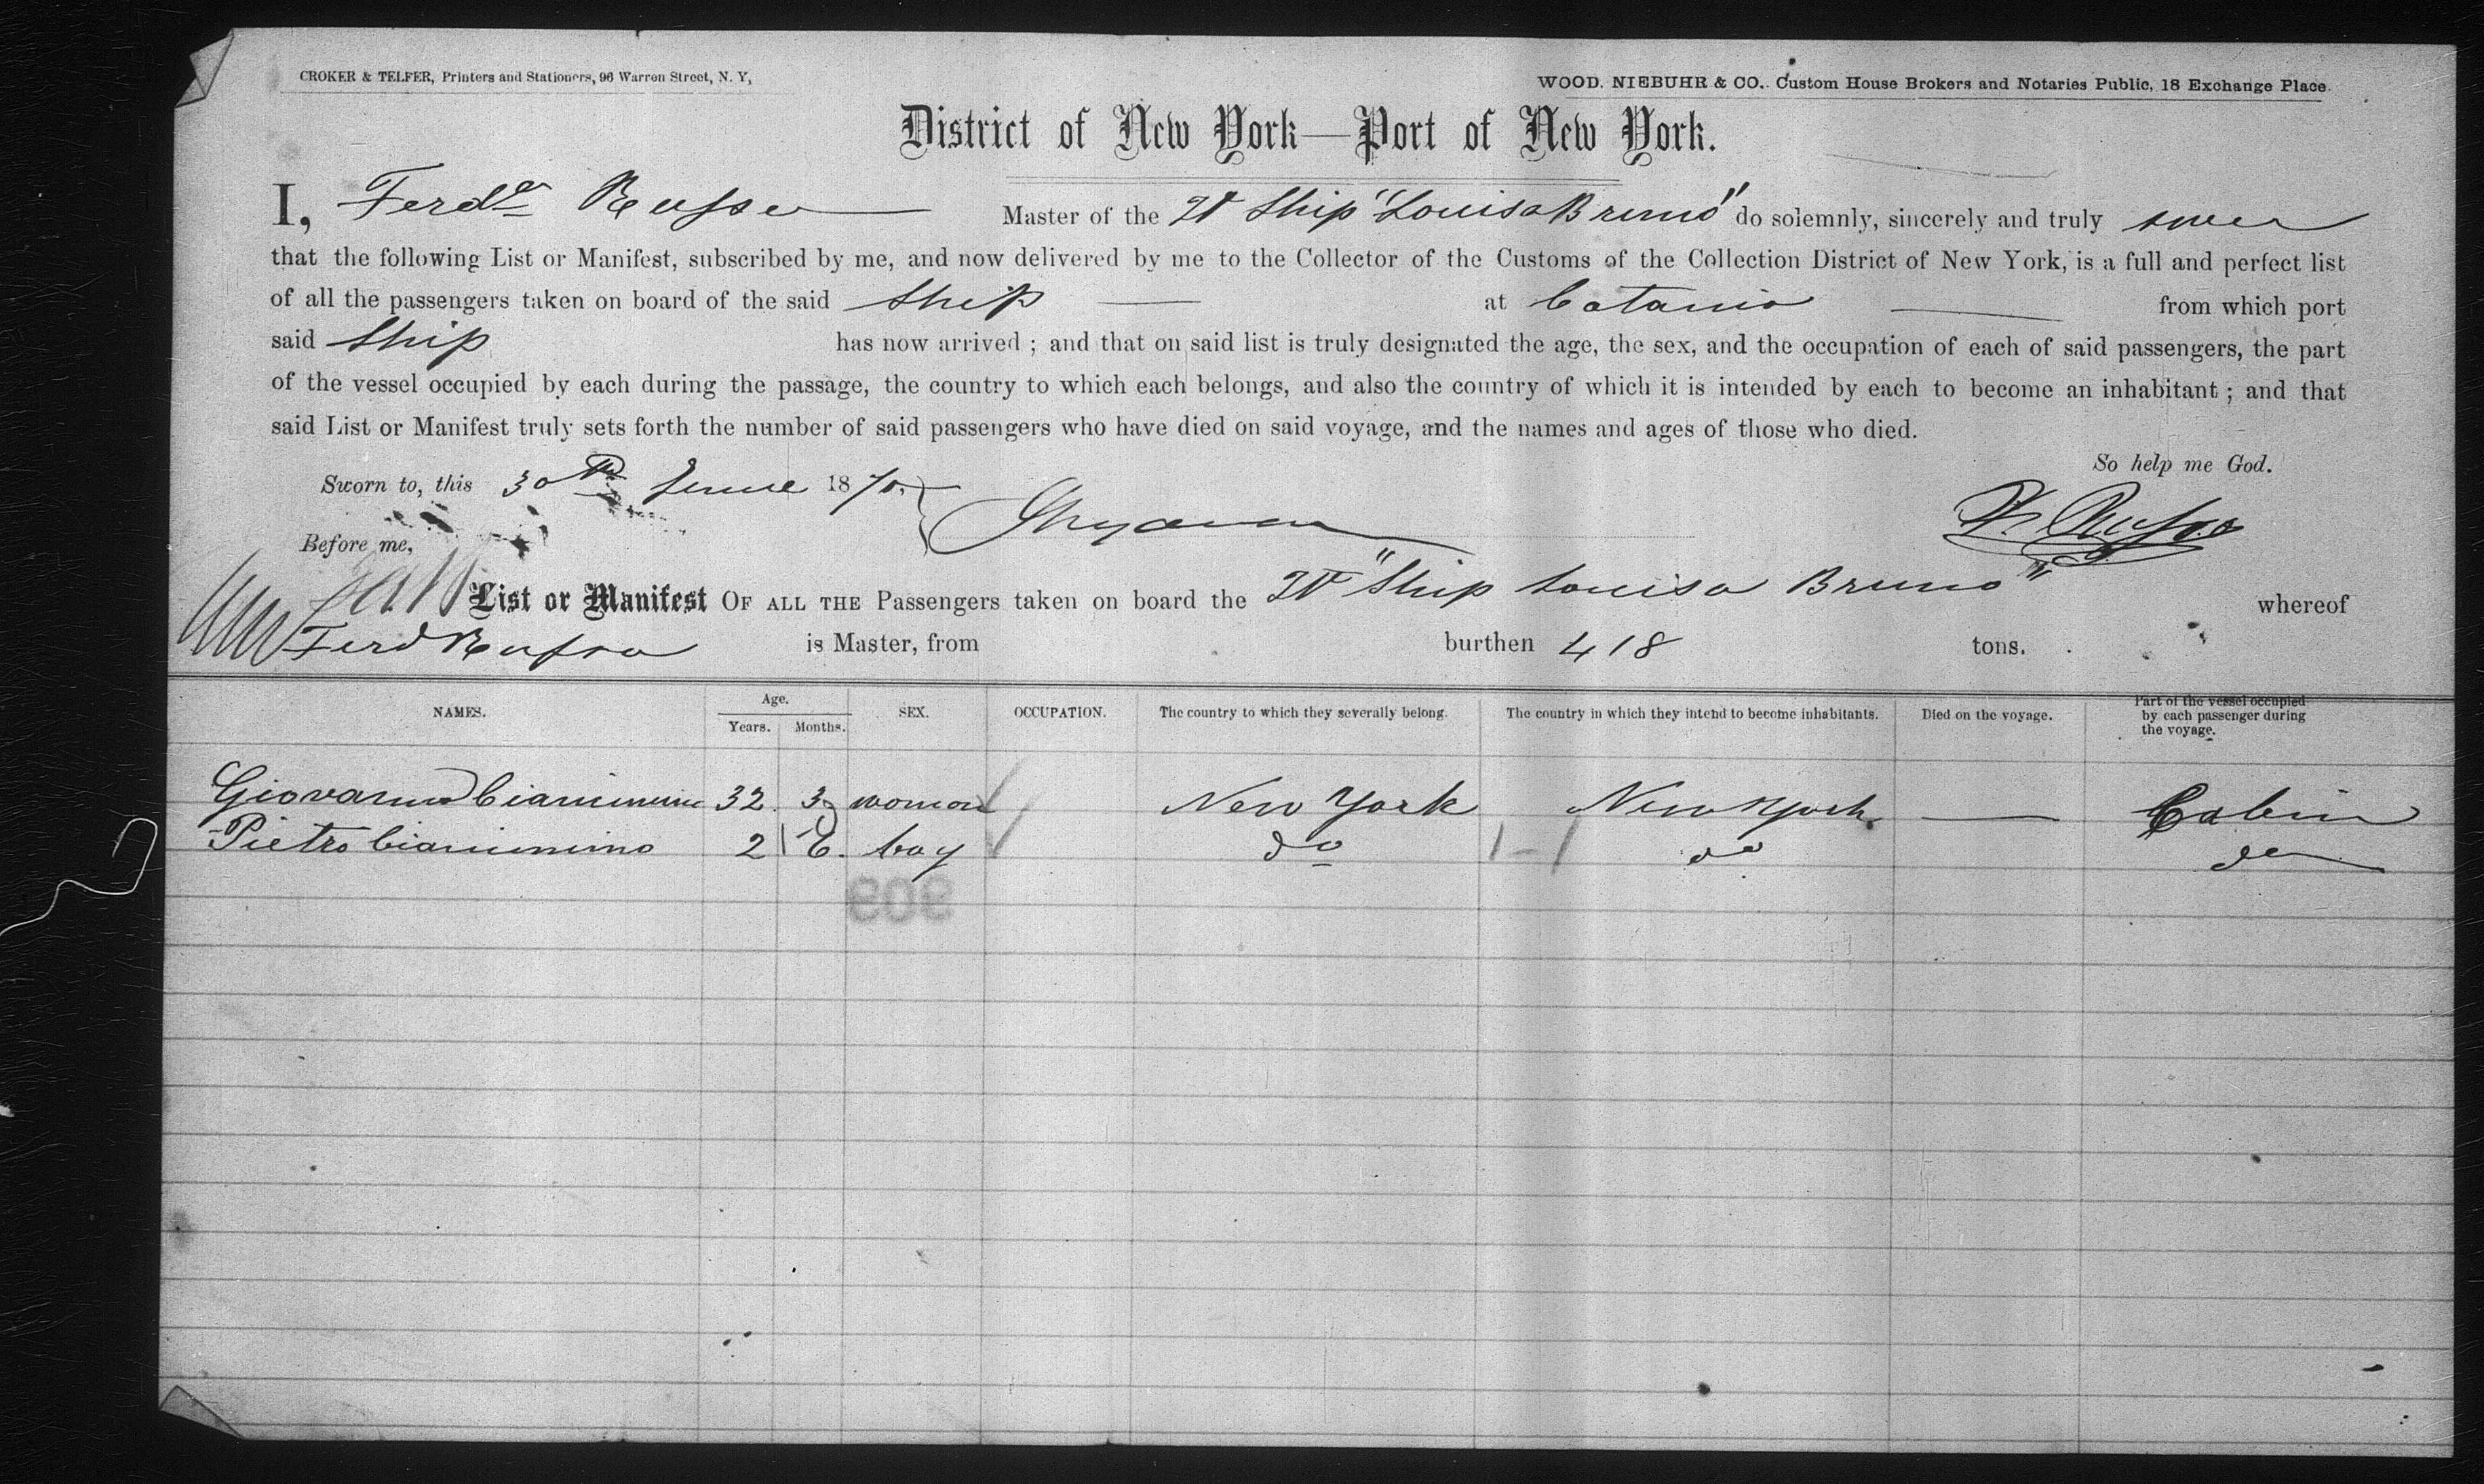 CROKER & TELFER, Printers and Stationers, 96 Warren Street, N. Y,
WOOD, NIEBUHR & CO., Custom House Brokers and Notaries Public, 18 Exchange Place.
District of New York—Port of New York.
I, Ferdo Russo Master of the It Ship "Louisa Bruno" do solemnly, sincerely and truly swear
that the following List or Manifest, subscribed by me, and now delivered by me to the Collector of the Customs of the Collection District of New York, is a full and perfect list
of all the passengers taken on board of the said Ship at Catania from which port
said Ship has now arrived ; and that on said list is truly designated the age, the sex, and the occupation of each of said passengers, the part
of the vessel occupied by each during the passage, the country to which each belongs, and also the country of which it is intended by each to become an inhabitant ; and that
said List or Manifest truly sets forth the number of said passengers who have died on said voyage, and the names and ages of those who died.
So help me God.
Sworn to, this 30th June 1870.
F. Russo
Before me,
List or Manifest OF ALL THE Passengers taken on board the It "Ship Louisa Bruno" whereof
Ferd Russo is Master, from burthen 418 tons.
NAMES. Age. Years. Months. SEX. OCCUPATION. The country to which they severally belong. The country in which they intend to become inhabitants. Died on the voyage. Part of the vessel occupied by each passenger during the voyage.
32 3 woman New York New York — Cabin
Pietro 2 6. boy do do do
909